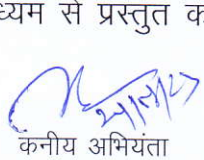 ध्यम से प्रस्तुत क
कनीय अभियंता